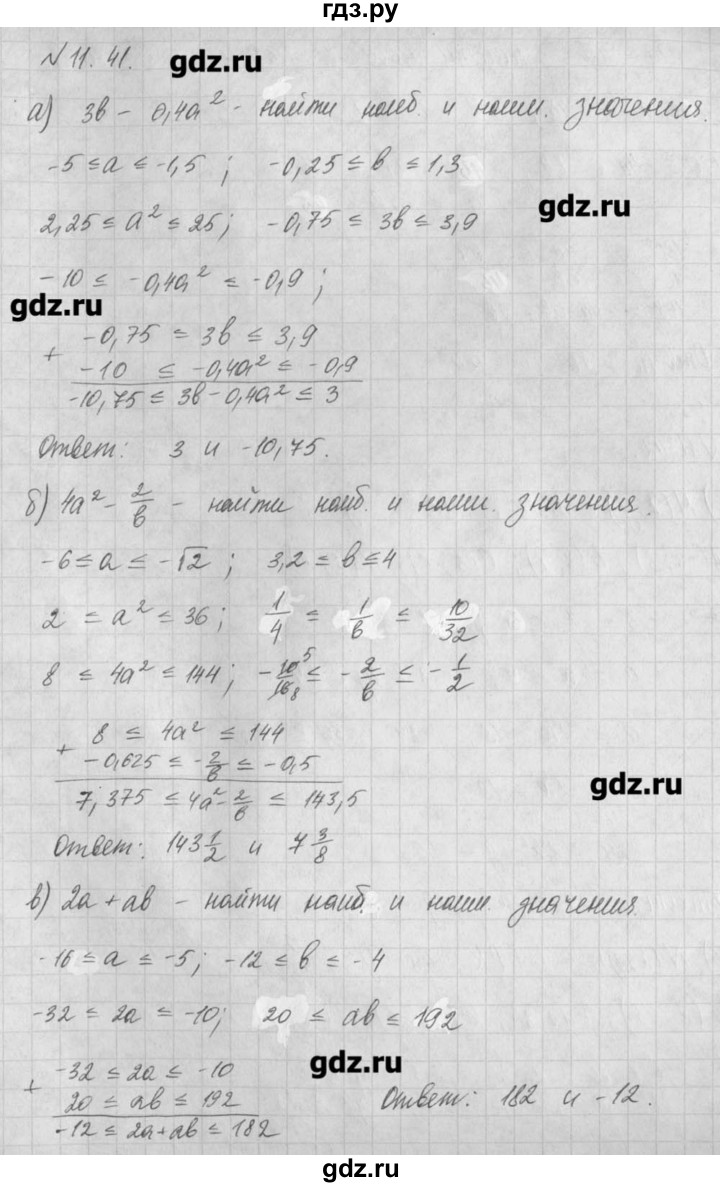 гдз.ру
№ 11.41.
gdz.ru
а) 3в − 0,4а² - найти наиб. и наим. значения.
-5 ≤ а ≤ -1,5 ; -0,25 ≤ в ≤ 1,3
gdz.ru
2,25 ≤ а² ≤ 25; -0,75 ≤ 3в ≤ 3,9
-10 ≤ -0,4а² ≤ -0,9 ;
gdz.ru
+ -0,75 ≤ 3в ≤ 3,9
-10 ≤ -0,4а² ≤ -0,9
-10,75 ≤ 3в - 0,4а² ≤ 3
Ответ: 3 и -10,75.
б) 4а² - 2/в - найти наиб. и наим. значения.
-6 ≤ а ≤ -√2 ; 3,2 ≤ в ≤ 4
2 ≤ а² ≤ 36; 1/4 ≤ 1/в ≤ 10/32
8 ≤ 4а² ≤ 144; -10/16 5/8 ≤ -2/в ≤ -1/2
+ 8 ≤ 4а² ≤ 144
-0,625 ≤ -2/в ≤ -0,5
gdz.ru
7,375 ≤ 4а² - 2/в ≤ 143,5
Ответ: 143 1/2 и 7 3/8
в) 2а + ав - найти наиб. и наим. значения
-16 ≤ а ≤ -5; -12 ≤ в ≤ -4
-32 ≤ 2а ≤ -10; 20 ≤ ав ≤ 192
gdz.ru
+ -32 ≤ 2а ≤ -10
20 ≤ ав ≤ 192
-12 ≤ 2а + ав ≤ 182
Ответ: 182 и -12.
gdz.ru